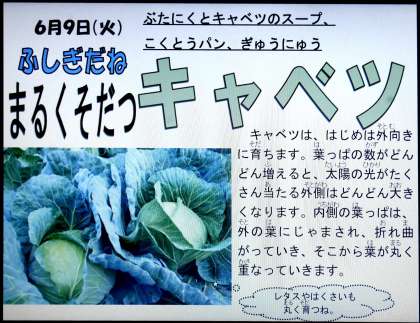 6月9日(火)
ぶたにくとキャベツのスープ、
こくとうパン、ぎゅうにゅう
ふしぎだね
まるくそだつ
キャベツ
キャベツは、はじめは外向き
に育ちます。葉っぱの数がどん
どん増えると、太陽の光がたく
さん当たる外側はどんどん大き
くなります。内側の葉っぱは、
外の葉にじゃまされ、折れ曲
がっていき、そこから葉が丸く
重なっていきます。
レタスやはくさいも
丸く育つね。